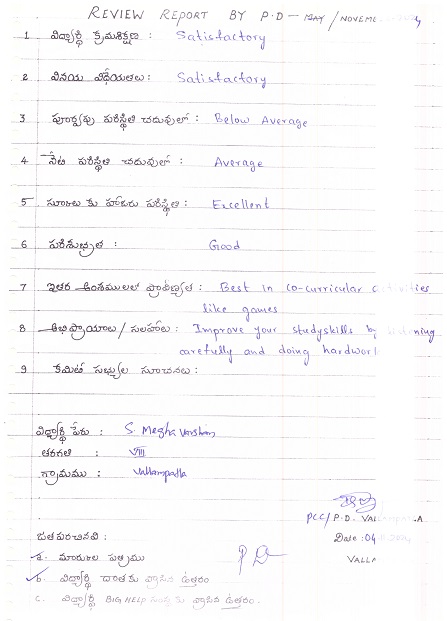 REVIEW REPORT BY P.D - MAY / NOVEM
1 విద్యార్థి క్రమశిక్షణ : Satisfactory
2 వినయ విధేయతలు : Satisfactory
3 పూర్వపు పరిస్థితి చదువులో : Below Average
4 నేటి పరిస్థితి చదువులో : Average
5 స్కూలు కు హాజరు పరిస్థితి : Excellent
6 పరిశుభ్రత : Good
7 ఇతర అంశములలో ప్రావీణ్యత : Best in co-curricular
like games
8 అభిప్రాయాలు / సలహాలు : Improve your studyskills by
carefully and doing hardwork
9 కమిటీ సభ్యుల సూచనలు :
విద్యార్థి పేరు : S. Megha Varshan
తరగతి : VIII
గ్రామము : Vallampatla
PCC/P.D.
జతపరచినవి : Date : 04
a. మార్కుల పత్రము VALLA
b. విద్యార్థి దాతకు వ్రాసిన ఉత్తరం
c. విద్యార్థి BIG HELP సంస్థ కు వ్రాసిన ఉత్తరం.